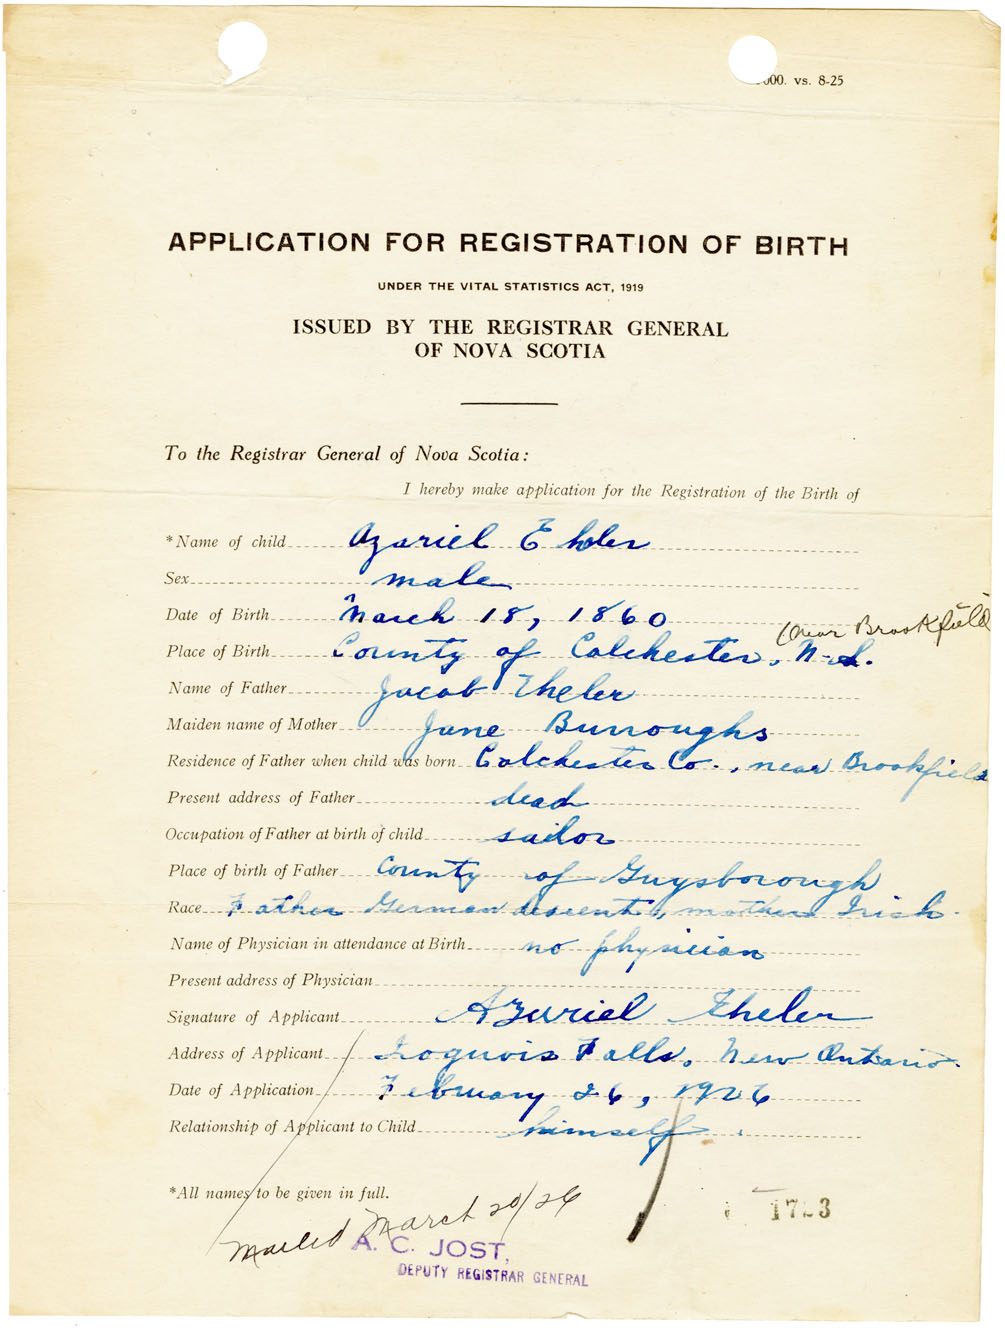 000. vs. 8-25
APPLICATION FOR REGISTRATION OF BIRTH
UNDER THE VITAL STATISTICS ACT, 1919
ISSUED BY THE REGISTRAR GENERAL
OF NOVA SCOTIA
To the Registrar General of Nova Scotia:
I hereby make application for the Registration of the Birth of
*Name of child Azariel Eheler
Sex male
Date of Birth March 18, 1860
(near Brookfield)
Place of Birth County of Colchester, N.S.
Name of Father Jacob Eheler
Maiden name of Mother Jane Burroughs
Residence of Father when child was born Colchester Co., near Brookfield
Present address of Father dead
Occupation of Father at birth of child sailor
Place of birth of Father County of Guysborough
Race Father German descent, mother Irish.
Name of Physician in attendance at Birth no physician
Present address of Physician
Signature of Applicant Azariel Eheler
Address of Applicant Iroquois Falls, New Ontario.
Date of Application February 26, 1926
Relationship of Applicant to Child himself.
*All names to be given in full.
Mailed March 20/26
A. C. JOST,
DEPUTY REGISTRAR GENERAL